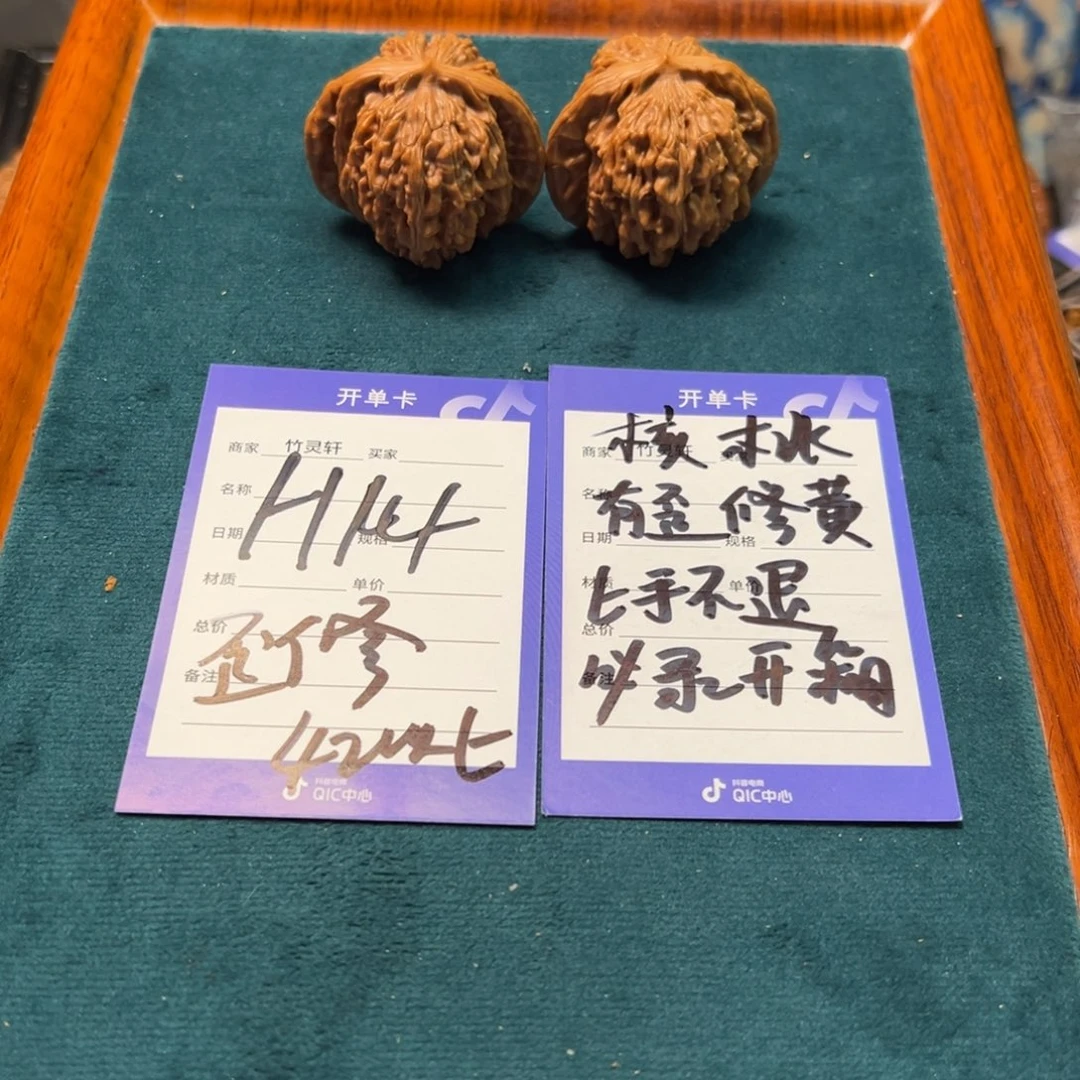 开单卡
商家 竹灵轩 买家
名称
H14
日期 规格
材质 单价
总价
歪修
备注
42以上
抖音电商
QIC中心
开单卡
商家 竹灵轩
核桃
名称
有歪修黄
日期 规格
材质 单价
上手不退
总价
备注
必录开箱
抖音电商
QIC中心